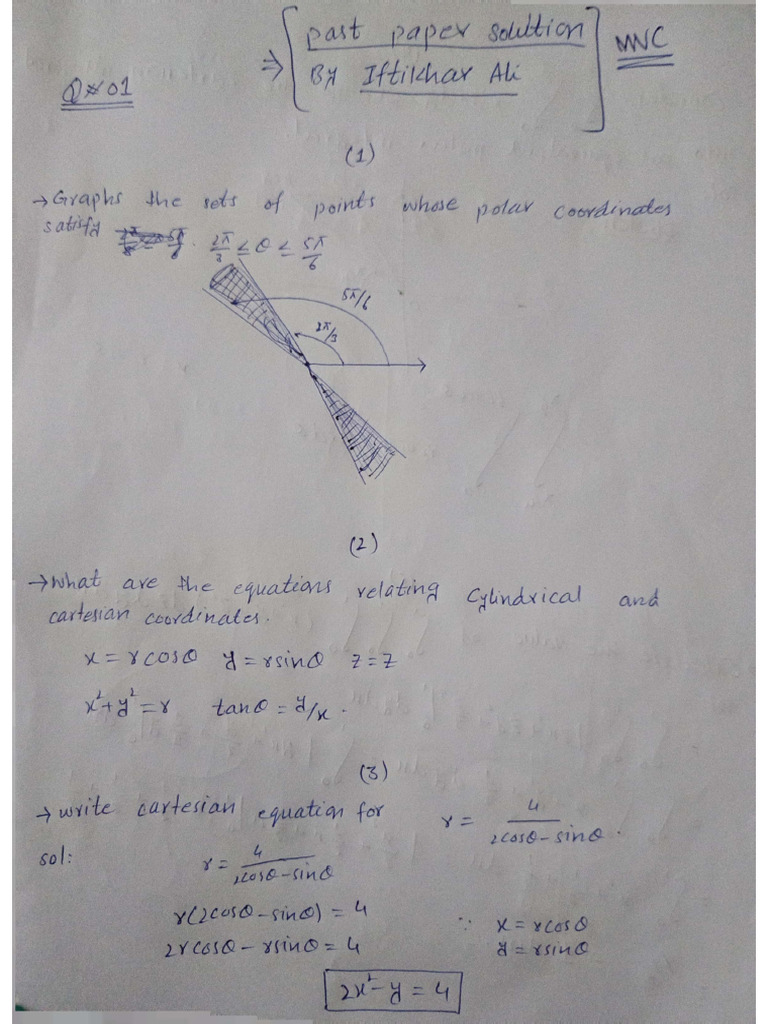 ⇒ [past paper solution] MNC
Q#01 By Iftikhar Ali
(1)
→ Graphs the sets of points whose polar coordinates
satisfy 2π/3 ≤ θ ≤ 5π/6
5π/6
2π/3
(2)
→ What are the equations relating Cylindrical and
cartesian coordinates.
x = rcosθ y = rsinθ z = z
x²+y² = r tanθ = y/x.
(3)
→ write cartesian equation for r = 4/(2cosθ-sinθ).
sol: r = 4/(2cosθ-sinθ)
r(2cosθ-sinθ) = 4 ∵ x = rcosθ
2rcosθ - rsinθ = 4 y = rsinθ
2x²-y = 4